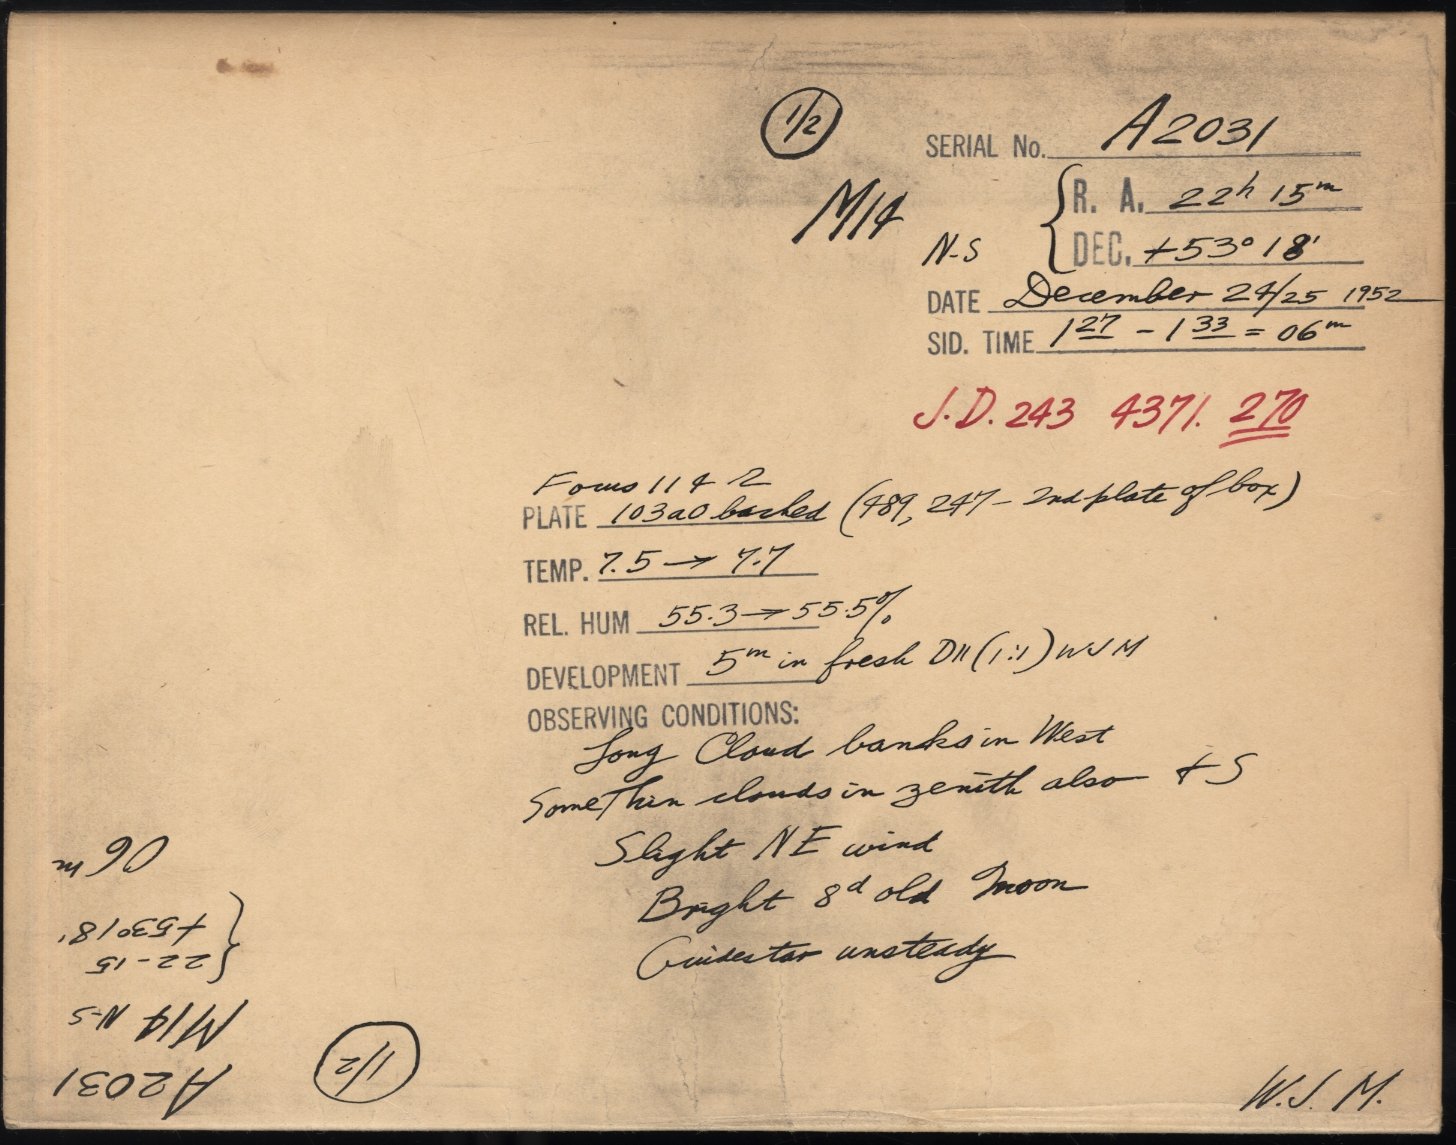 1/2
SERIAL No. A2031
M14
R. A. 22h 15m
N-S DEC. +53° 18'
DATE December 24/25 1952
SID. TIME 1 27 - 1 33 = 06m
J.D. 243 4371. 270
Focus 114 2
PLATE 103a0 backed (489, 247 - 2nd plate of box)
TEMP. 7.5 → 7.7
REL. HUM 55.3 → 55.5%
DEVELOPMENT 5m in fresh D11 (1:1) WJM
OBSERVING CONDITIONS:
Long Cloud banks in West
Some Thin clouds in zenith also + S
Slight NE wind
Bright 8d old moon
Guidestar unsteady
W.J.M.
A2031
1/2
M14 N-S
22-15
+53°18'
06m